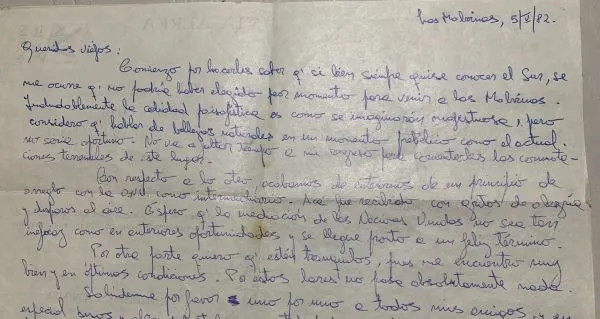 Las Malvinas, 5/V/82.
Queridos viejos:
Comienzo por hacerles saber q' si bien siempre quise conocer el Sur, se
me ocurre q' no podría haber elegido peor momento para venir a las Malvinas.
Indudablemente la calidad paisajística es como se imaginarán majestuosa, pero
considero q' hablar de bellezas naturales en un momento prebélico como el actual
no sería oportuno. No va a faltar tiempo a mi regreso para comentarles las connota-
ciones terrenales de este lugar.
Con respecto a lo otro, acabamos de enterarnos de un principio de
arreglo con la ONU como intermediario. Acá fue recibido con gritos de alegría
y disparos al aire. Espero q' la mediación de las Naciones Unidas no sea tan
ineficaz como en anteriores oportunidades y se llegue pronto a un feliz término.
Por otra parte quiero q' estén tranquilos, pues me encuentro muy
bien y en óptimas condiciones. Por estos lares no pasa absolutamente nada.
Salúdenme por favor uno por uno a todos mis amigos, y en
especial